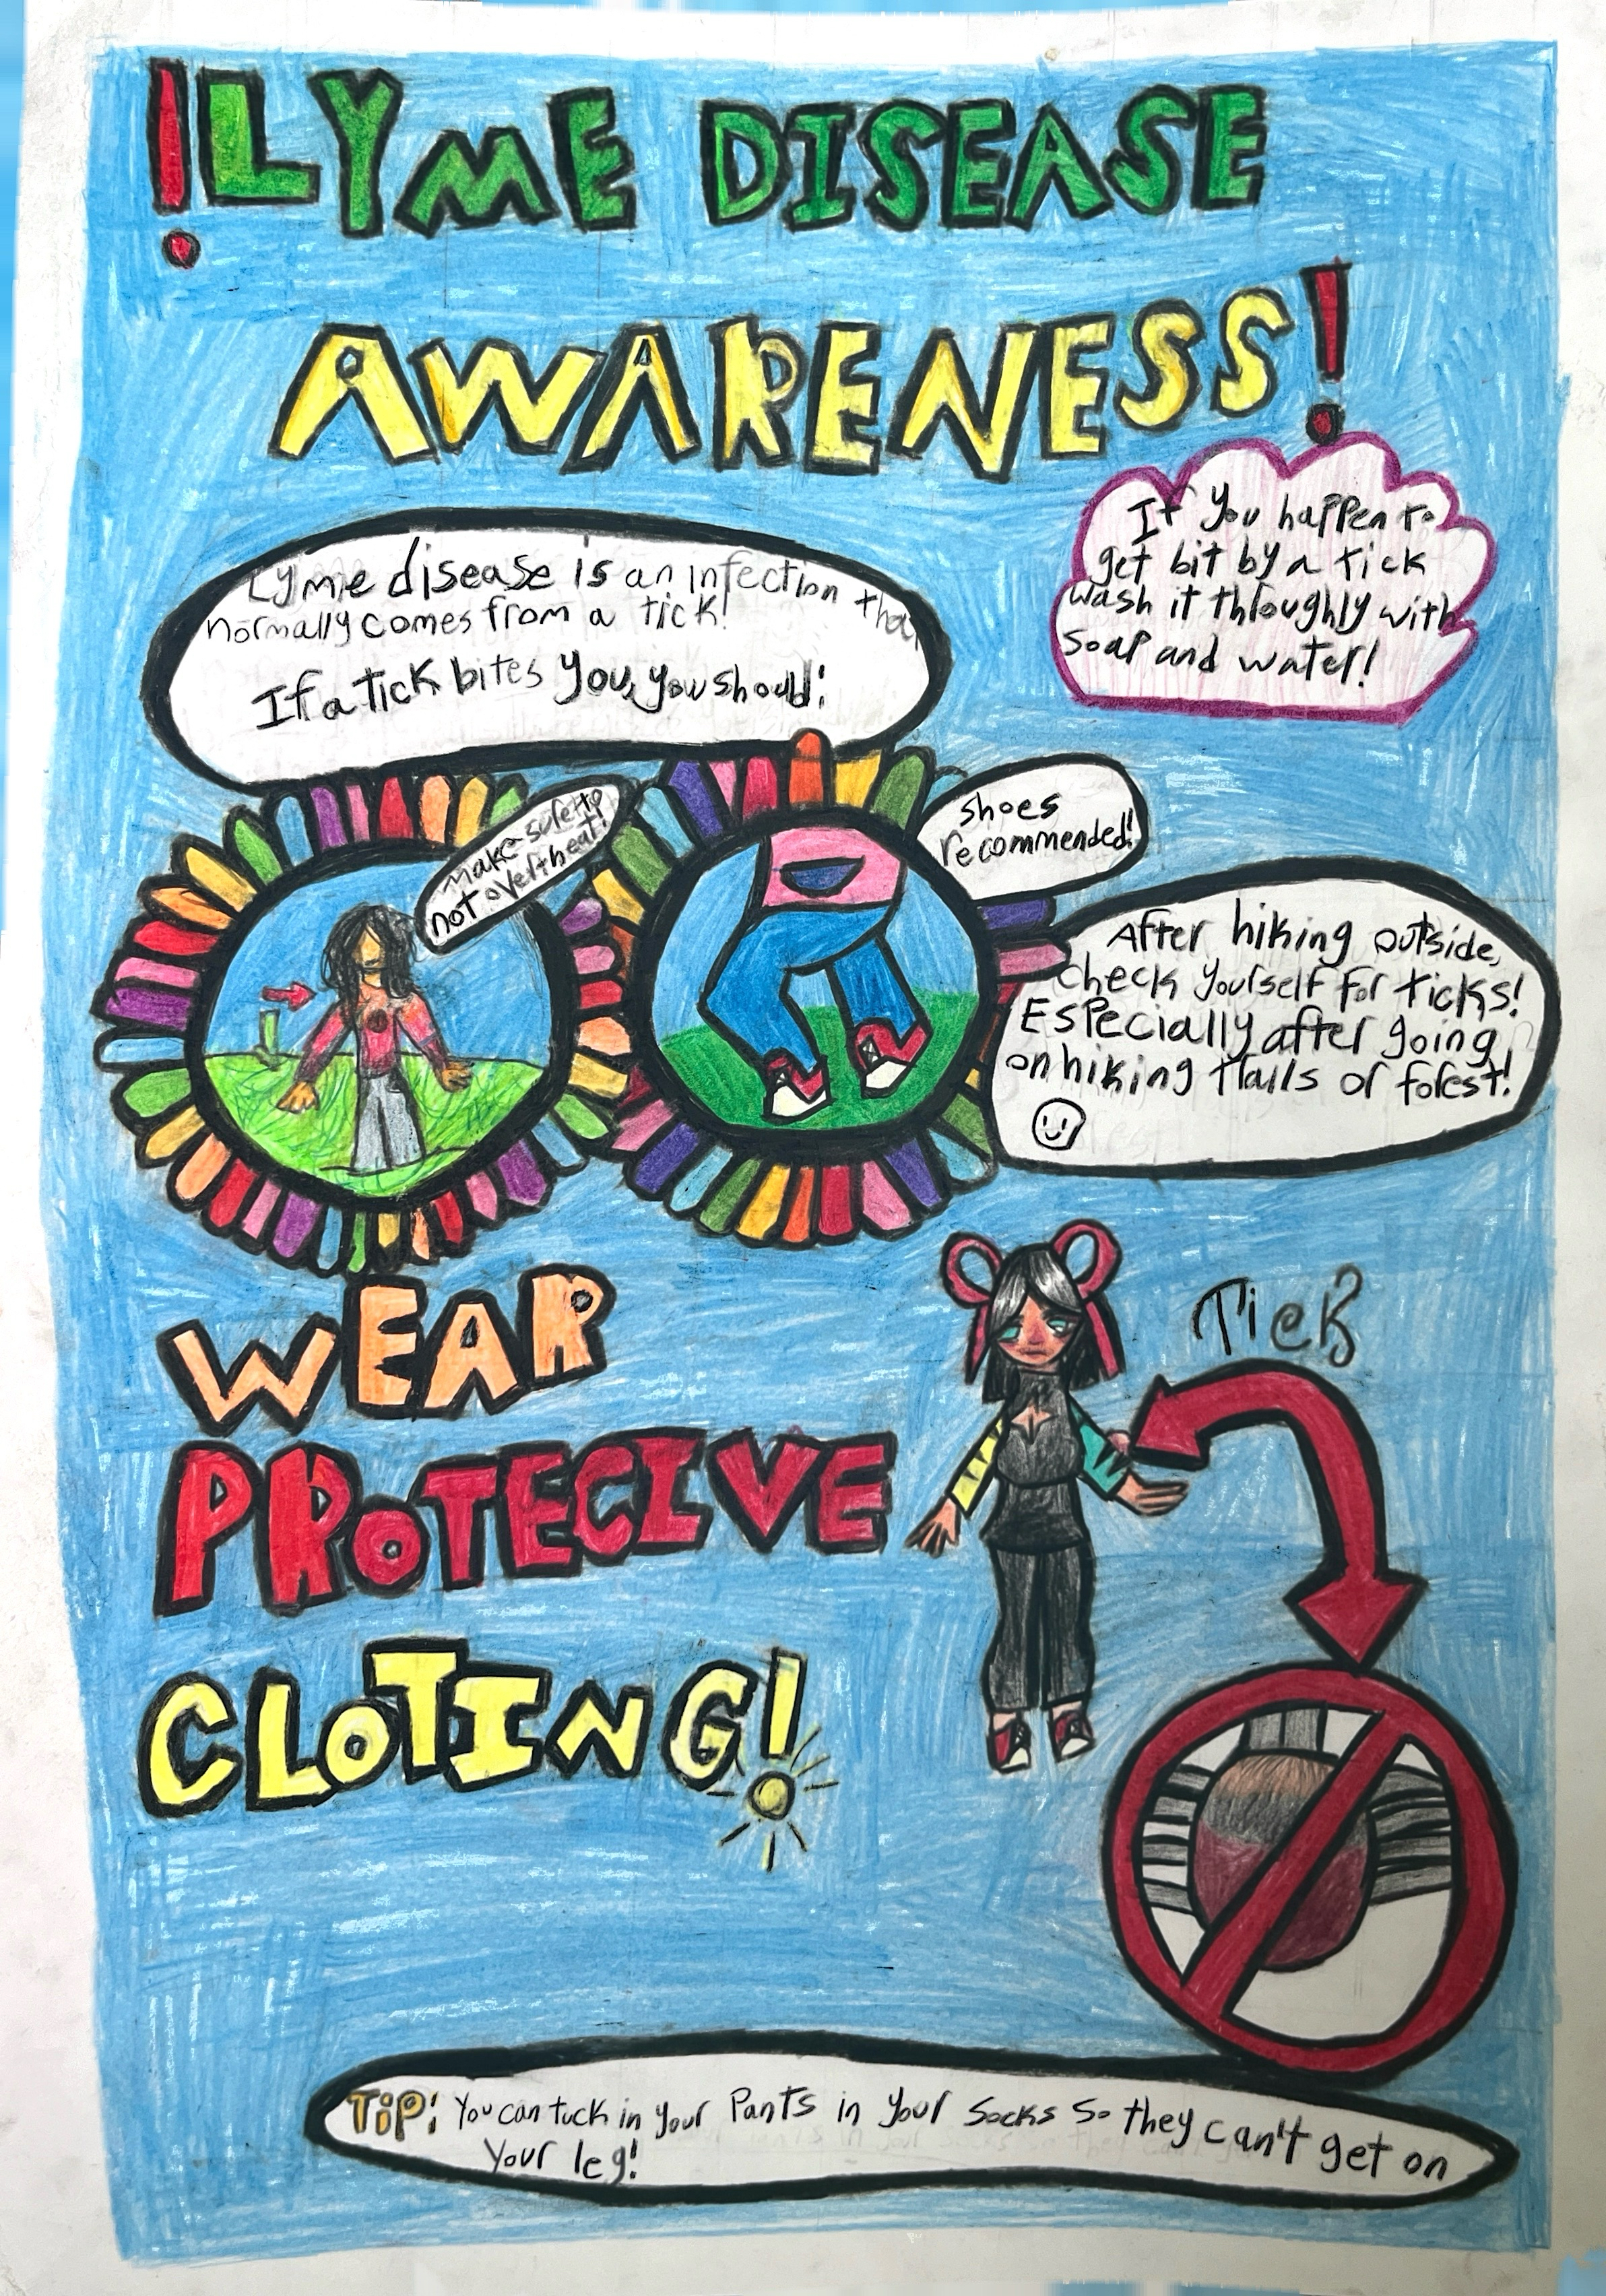 !LYME DISEASE
AWARENESS!
If you happen to
get bit by a tick
wash it throughly with
soap and water!
Lyme disease is an infection that
normally comes from a tick!
If a tick bites you, you should:
Make sure to
not overheat!
shoes
recommended!
After hiking outside,
check yourself for ticks!
Especially after going
on hiking trails or forest!
WEAR
PROTECIVE
CLOTING!
Tick
TiP: You can tuck in your pants in your socks so they can't get on
your leg!